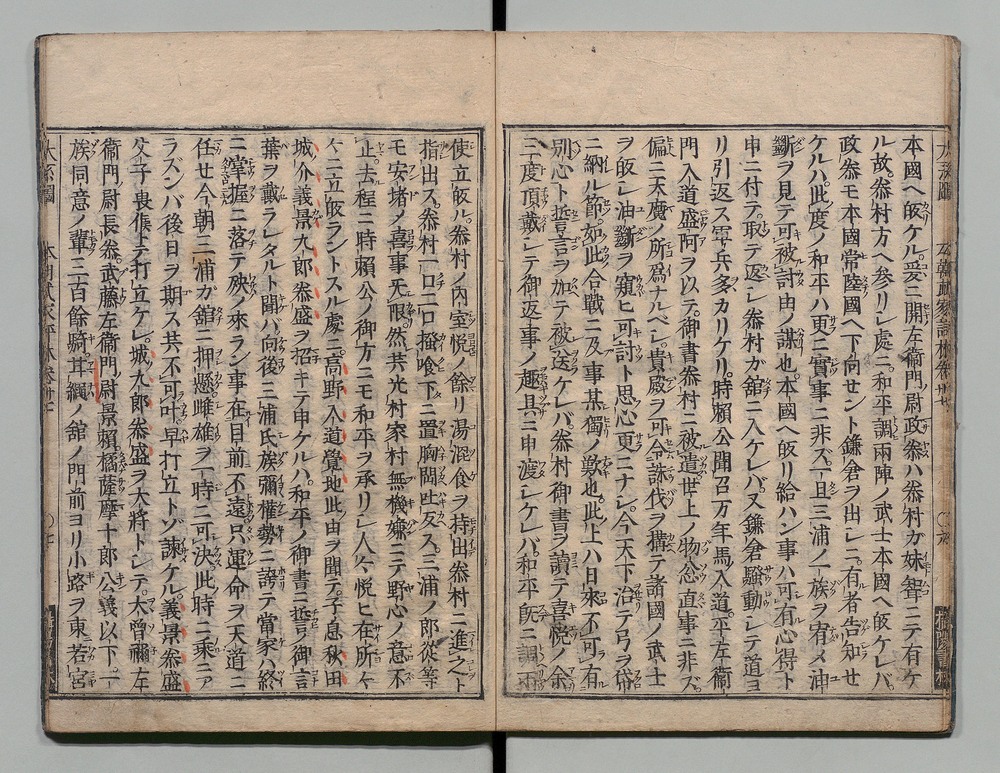 本國ヘ皈ケル。爰ニ開左衛門ノ尉政㤗ハ㤗村ガ妹聟ニテ有ケ
ル故。㤗村方ヘ参リシ處ニ。和平調兩陣ノ武士本國ヘ皈ケレバ。
政㤗モ本國常陸國ヘ下向セント鎌倉ヲ出シニ。有者告知セ
ケルハ。此度ノ和平ハ更ニ實事ニ非ズ。一旦三浦ノ一族ヲ宥メ油
斷ヲ見テ可被討由ノ謀也。本國ヘ皈リ給ハン事ハ可有心得ト
申ニ付テ。取テ返シ㤗村カ舘ニ入ケレバ。又鎌倉騷動シテ道ヨ
リ引返ス軍兵多カリケリ。時賴公聞召万年馬入道。平左衛
門入道盛阿ヲ以テ。御書㤗村ニ被遣。世上ノ物忩直事ニ非ズ。
偏ニ天魔ノ所爲ナルベシ。貴殿ヲ可令誅伐ヲ構テ諸國ノ武士
ヲ皈シ油斷ヲ窺ヒ可討ト思心更ニナシ。今天下治テ弓ヲ帒
ニ納ル節。如此合戰ニ及事某獨ノ歎也。此上ハ日來不可有
別心ト誓言ヲ加テ被送ケレバ。㤗村御書ヲ讀テ喜悅ノ余
三度頂戴シテ御返事ノ趣具ニ申渡シケレバ。和平既ニ調而
使立皈ル。㤗村ノ内室悅ノ餘リ湯混食ヲ持出㤗村ニ進之ト
指出ス。㤗村一口二口搔喰下ニ置胸悶吐反ス。三浦ノ郎從等
モ安堵ノ喜事无限。然共光村家村無機嫌ニテ野心ノ意不
止。去程ニ時賴公ノ御方ニモ和平ヲ承リ人々悅ヒ在所々
々ニ立皈ラントスル處ニ。高野入道覺地此由ヲ聞テ。子息秋田
城ノ介義景九郎㤗盛ヲ招キテ申ケルハ。和平ノ御書ニ誓御言
葉ヲ戴ラレタルト聞バ向後三浦氏族彌權勢ニ誇テ當家ハ終
ニ掌握ニ落テ殃ノ來ラン事在目前ニ不遠。只運命ヲ天道ニ
任セ今朝三浦カ舘ニ押懸雌雄ヲ一時ニ可決此時ニ乘ニア
ラズンバ後日ヲ期ス共不可叶。早打立トゾ諫ケル。義景㤗盛
父子喪悵上テ打立ケレ。城九郎㤗盛ヲ大將トシテ。大曾禰左
衞門ノ尉長㤗。武藤左衞門ノ尉景賴。橘薩摩十郎公義以下。一
族同意ノ輩三百餘騎。耳繩ノ舘ノ門前ヨリ小路ヲ東若宮